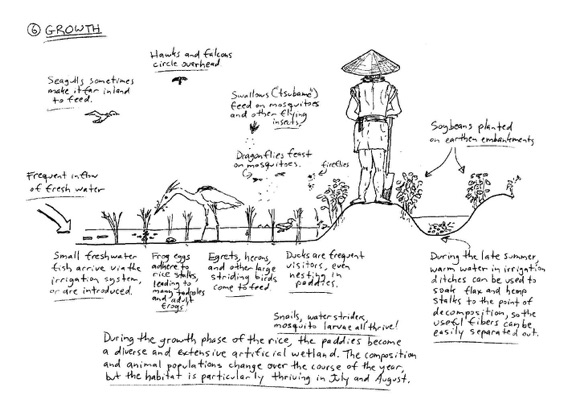 ⑥ GROWTH
Hawks and falcons
circle overhead.
Seagulls sometimes
make it far inland
to feed.
Swallows (tsubame)
feed on mosquitoes
and other flying
insects.
Dragonflies feast
on mosquitoes.
fireflies
Soybeans planted
on earthen embankments
Frequent inflow
of fresh water
Small freshwater
fish arrive via the
irrigation system,
or are introduced.
Frog eggs
adhere to
rice stalks,
leading to
many tadpoles
and adult
frogs.
Egrets, herons,
and other large
striding birds
come to feed.
Ducks are frequent
visitors, even
nesting in
paddies.
During the late summer,
warm water in irrigation
ditches can be used to
soak flax and hemp
stalks to the point of
decomposition, so the
useful fibers can be
easily separated out.
Snails, water striders,
mosquito larvae all thrive!
During the growth phase of the rice, the paddies become
a diverse and extensive artificial wetland. The composition
and animal populations change over the course of the year,
but the habitat is particularly thriving in July and August.